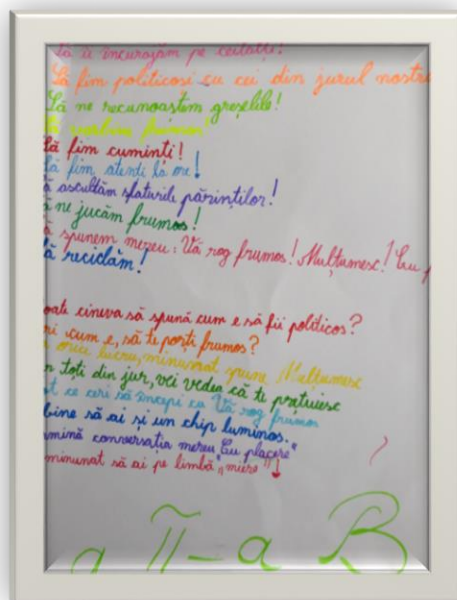 Să îi încurajăm pe ceilalți!
Să fim politicoși cu cei din jurul nostru
Să ne recunoaștem greșelile!
frumos!
Să fim cuminți!
Să fim atenți la ore!
ă ascultăm sfaturile părinților!
ă ne jucăm frumos!
ă spunem mereu: Vă rog frumos! Mulțumesc! Cu p
ă reciclăm!
oate cineva să spună cum e să fii politicos?
ri cum e, să te porți frumos?
orice lucru, minunat spune Mulțumesc
n toți din jur, vei vedea că te prețuiesc
t ce ceri să începi cu Vă rog frumos
bine să ai și un chip luminos.
rmină conversația mereu „Cu plăcere"
minunat să ai pe limbă „miere"!
a II-a B